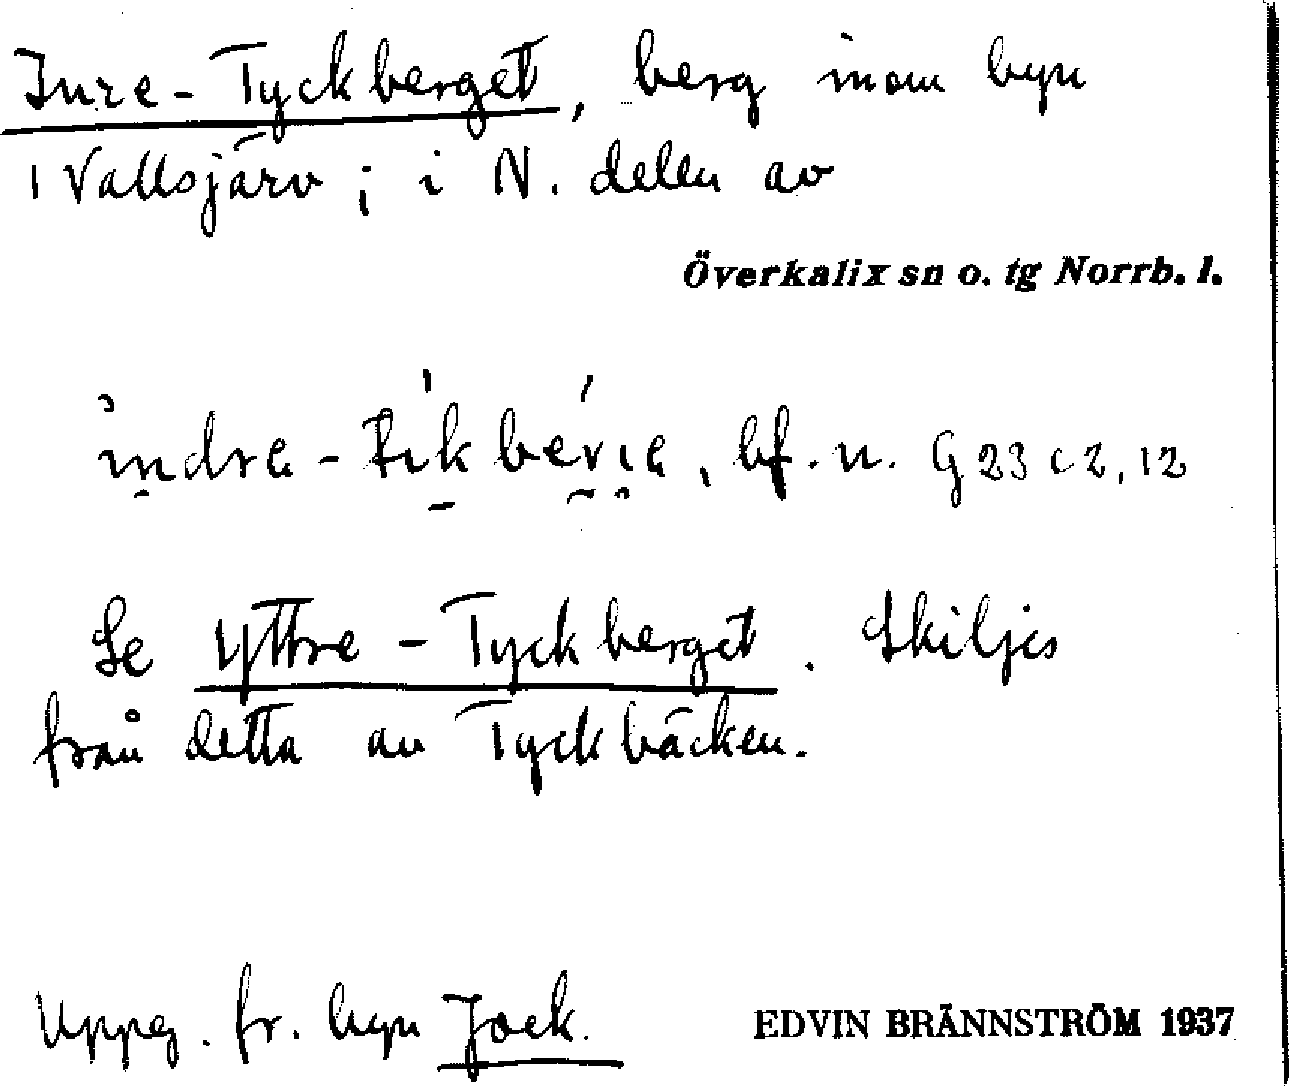 Inre-Tyckberget, berg inom byn
1 Vallsjärv; i N. delen av
Överkalix sn o. tg Norrb. l.
bf. n. G 23 c 2, 12
Se Yttre-Tyckberget. Skiljes
från detta av Tyckbäcken.
Uppg. fr. byn Jock.
EDVIN BRÄNNSTRÖM 1937